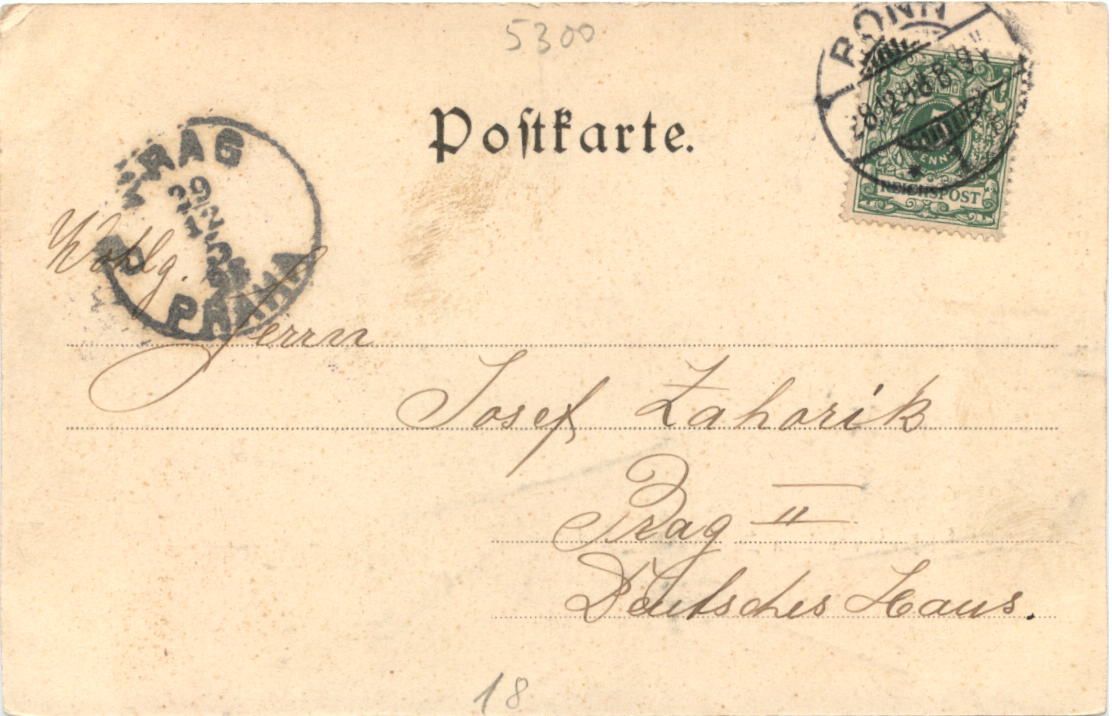 5300
Postkarte.
BONN
REICHSPOST
PRAG
PRAHA
Wohlg.
Herrn
Josef Zahorik
Prag II
Deutsches Haus.
18